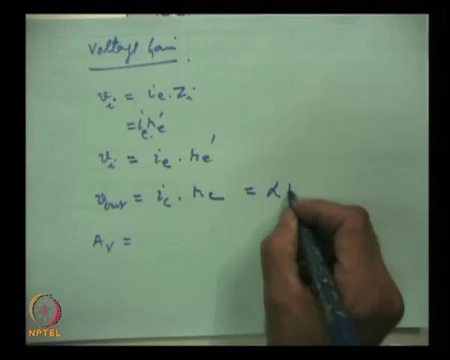 Voltage Gain.
v_i = i_e . Z_i
= i_e . r_e'
v_i = i_e . r_e'
v_out = i_c . r_c = α
A_V =
NPTEL